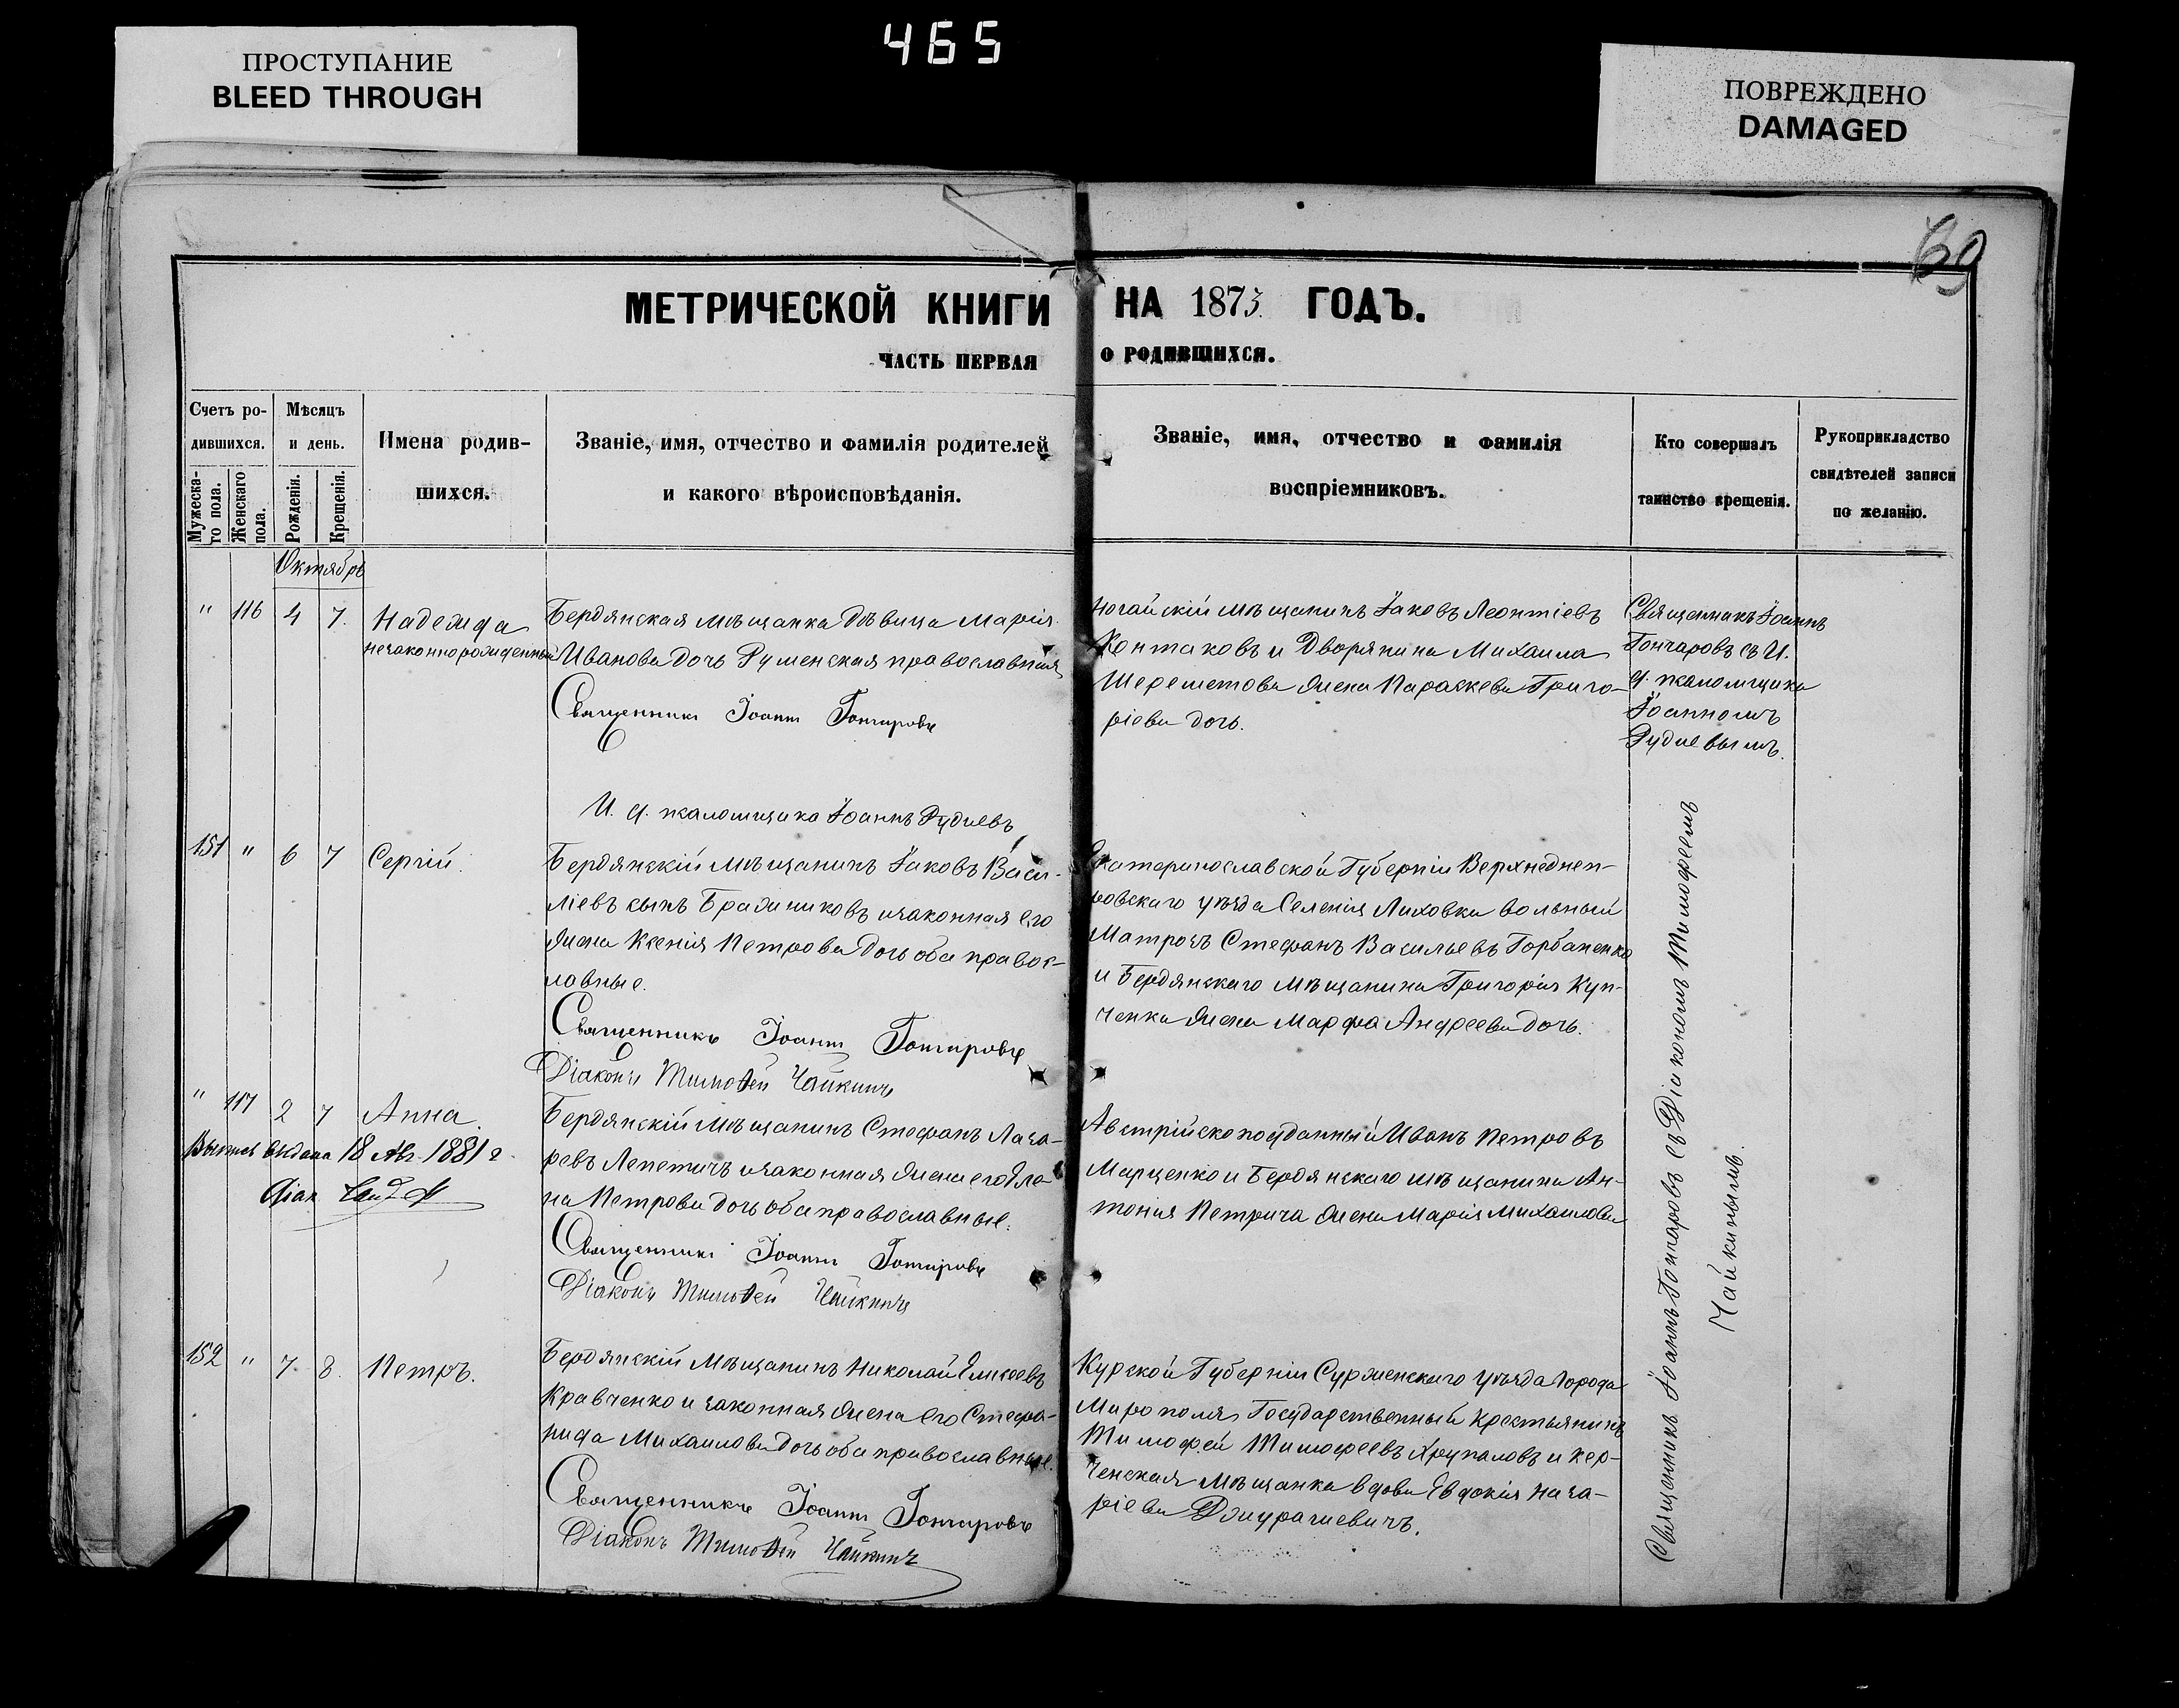 ПРОСТУПАНИЕ
BLEED THROUGH
465
ПОВРЕЖДЕНО
DAMAGED
69
МЕТРИЧЕСКОЙ КНИГИ НА 1873 ГОДЪ.
ЧАСТЬ ПЕРВАЯ О РОДИВШИХСЯ.
Счетъ ро-
дившихся.
Мужеска-
го пола.
Женскаго
пола.
Мѣсяцъ
и день.
Рожденія.
Крещенія.
Имена родив-
шихся.
Званіе, имя, отчество и фамилія родителей
и какого вѣроисповѣданія.
Званіе, имя, отчество и фамилія
воспріемниковъ.
Кто совершалъ
таинство крещенія.
Рукоприкладство
свидѣтелей записи
по желанію.
Октябрь
" 116 4 7. Надежда
незаконнорожденная
Бердянская мѣщанка дѣвица Марія
Иванова дочь Руменская православная
Священникъ Іоаннъ Гончаровъ
И. д. псаломщика Іоаннъ Рудиевъ
Ногайскій мѣщанинъ Іаковъ Леонтіевъ
Контаковъ и Дворянина Михаила
Шереметова жена Параскева Григо-
ріева дочь.
Священникъ Іоаннъ
Гончаровъ съ И.
д. псаломщика
Іоанномъ
Рудиевымъ.
151 " 6 7 Сергій.
Бердянскій мѣщанинъ Іаковъ Васи-
ліевъ сынъ Бражниковъ и законная его
жена Ксенія Петрова дочь оба правос-
лавные.
Священникъ Іоаннъ Гончаровъ
Діаконъ Тимоѳей Чайкинъ
Екатеринославской Губерніи Верхнеднеп-
ровскаго уѣзда Селенія Лиховки вольный
Матросъ Стефанъ Васильевъ Горбаненко
и Бердянскаго мѣщанина Григорія Куп-
ченка жена Марфа Андреева дочь.
" 117 2 7 Анна.
Выпись выдана 18 Авг. 1881 г.
Бердянскій мѣщанинъ Стефанъ Лаза-
ревъ Лепетичъ и законная жена его Еле-
на Петрова дочь оба православные.
Священникъ Іоаннъ Гончаровъ
Діаконъ Тимоѳей Чайкинъ
Австрійскоподданный Иванъ Петровъ
Марценко и Бердянскаго мѣщанина Ан-
тонія Петрича жена Марія Михаилова
152 " 7 8. Петръ.
Бердянскій Мѣщанинъ Николай Елисеевъ
Кравченко и законная жена его Стефа-
нида Михаилова дочь оба православные.
Священникъ Іоаннъ Гончаровъ
Діаконъ Тимоѳей Чайкинъ
Курской Губерніи Суржанскаго уѣзда города
Мирополя Государственный крестьянинъ
Тимофей Тимофеевъ Хрупаловъ и Кер-
ченская мѣщанка вдова Евдокія Наза-
ріева
Священникъ Іоаннъ Гончаровъ съ Діакономъ Тимофеемъ
Чайкинымъ.